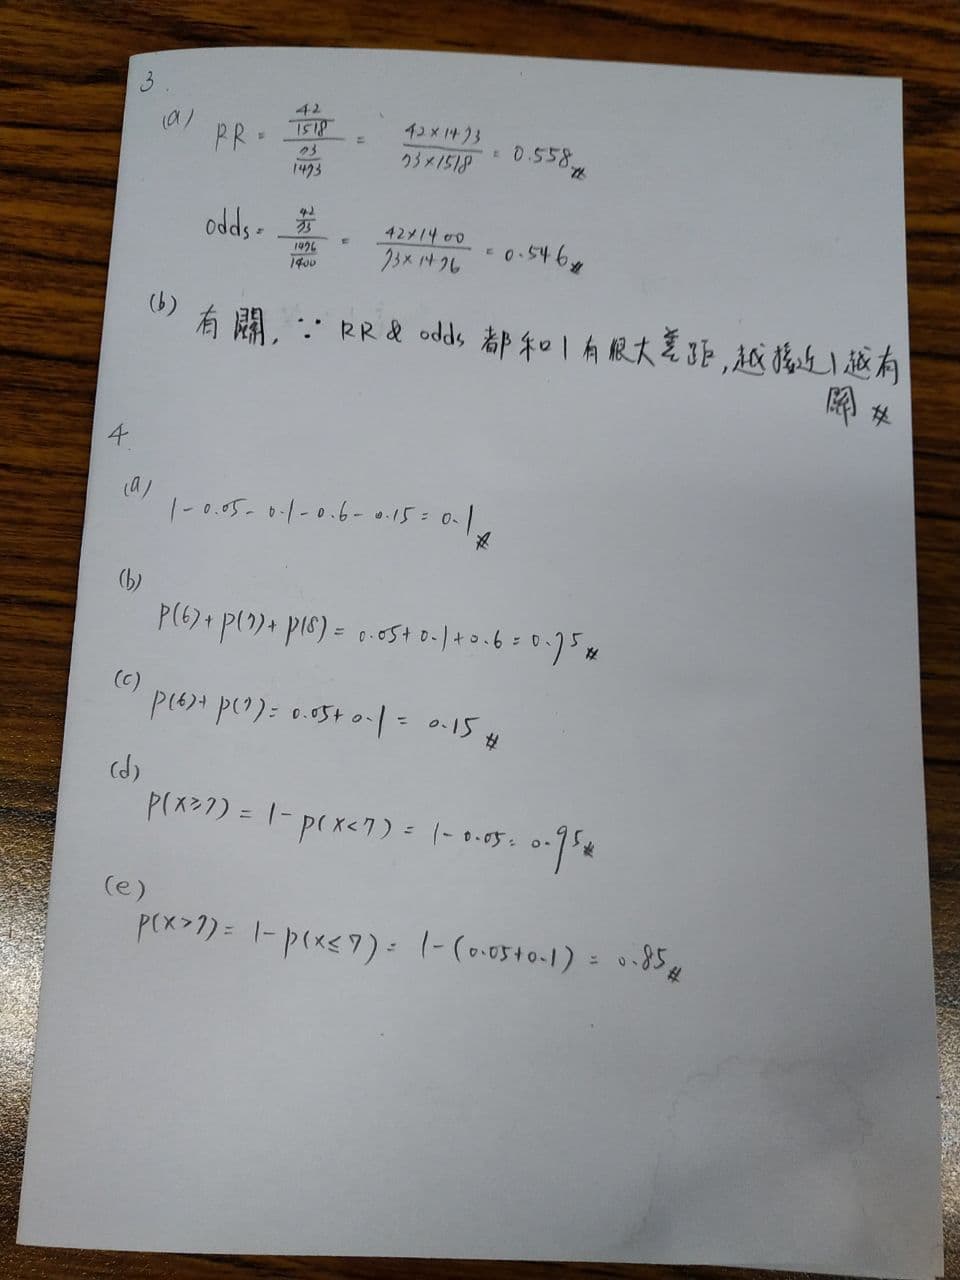 3.
(a) RR = \frac{\frac{42}{1518}}{\frac{73}{1473}} = \frac{42×1473}{73×1518} = 0.558 #
odds = \frac{\frac{42}{73}}{\frac{1476}{1400}} = \frac{42×1400}{73×1476} = 0.546 #
(b) 有關, ∵ RR & odds 都和1有很大差距,越接近1越有
關 #
4.
(a)
1-0.05-0.1-0.6-0.15=0.1 #
(b)
P(6)+P(7)+P(8)=0.05+0.1+0.6=0.75 #
(c)
P(6)+P(7)=0.05+0.1=0.15 #
(d)
P(X≥7)=1-P(X<7)=1-0.05=0.95 #
(e)
P(X>7)=1-P(X≤7)=1-(0.05+0.1)=0.85 #